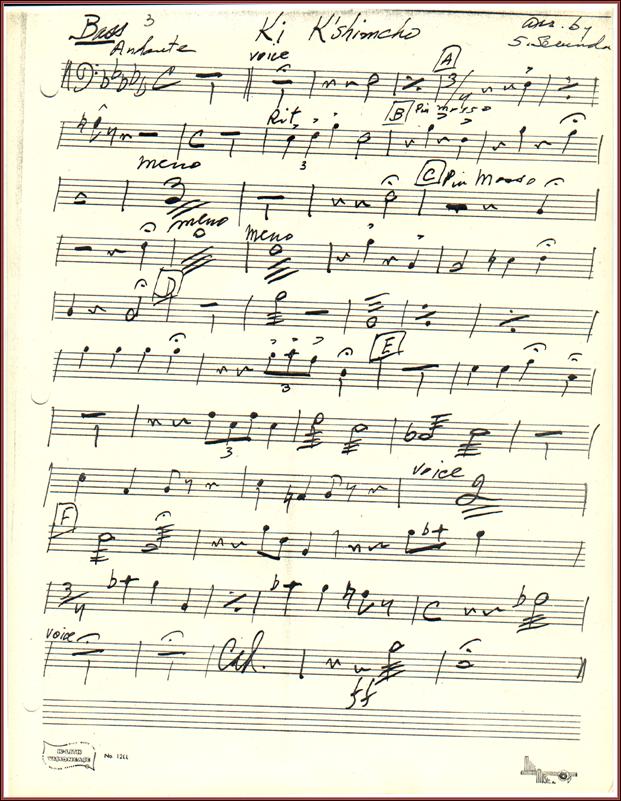 Bass 3 Ki K'shimcho arr. by
Andante S. Secunda
voice A 3/4
C
Rit. B Piu mosso
3
meno C Piu Mosso
3
meno meno
D
E
3
3
voice
2
F
3/4
C
voice
Cad.
ff
No. 1211